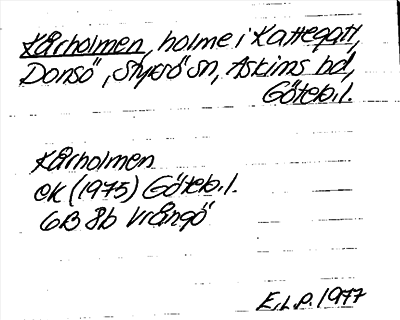 Kårholmen, holme i Kattegatt,
Donsö, Styrsö sn, Askims hd,
Göteb. l.
Kårholmen
EK (1975) Göteb. l.
6B 8b Vrångö
E.L.P. 1977